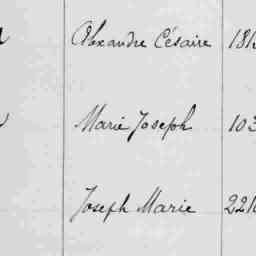 Alexandre Césaire 18
Marie Joseph 103
Joseph Marie 221